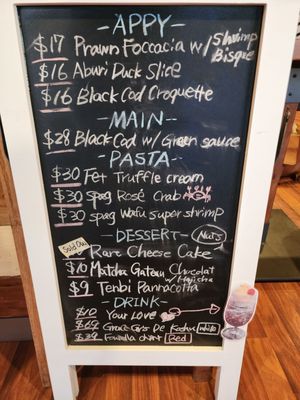 -APPY-
$17 Prawn Foccacia w/ Shrimp Bisque
$16 Aburi Duck Slice
$16 Black Cod Croquette
-MAIN-
$28 Black Cod w/ Green sauce
-PASTA-
$30 Fet Truffle cream
$30 spag Rosé Crab
$30 spag Wafu super shrimp
-DESSERT- Nuts
Sold Out Rare Cheese Cake
$10 Matcha Gateau Chocolat
/Hojicha
$9 Tenbi Pannacotta
-DRINK-
$10 Your LOVE
$69 De white
$39 Red